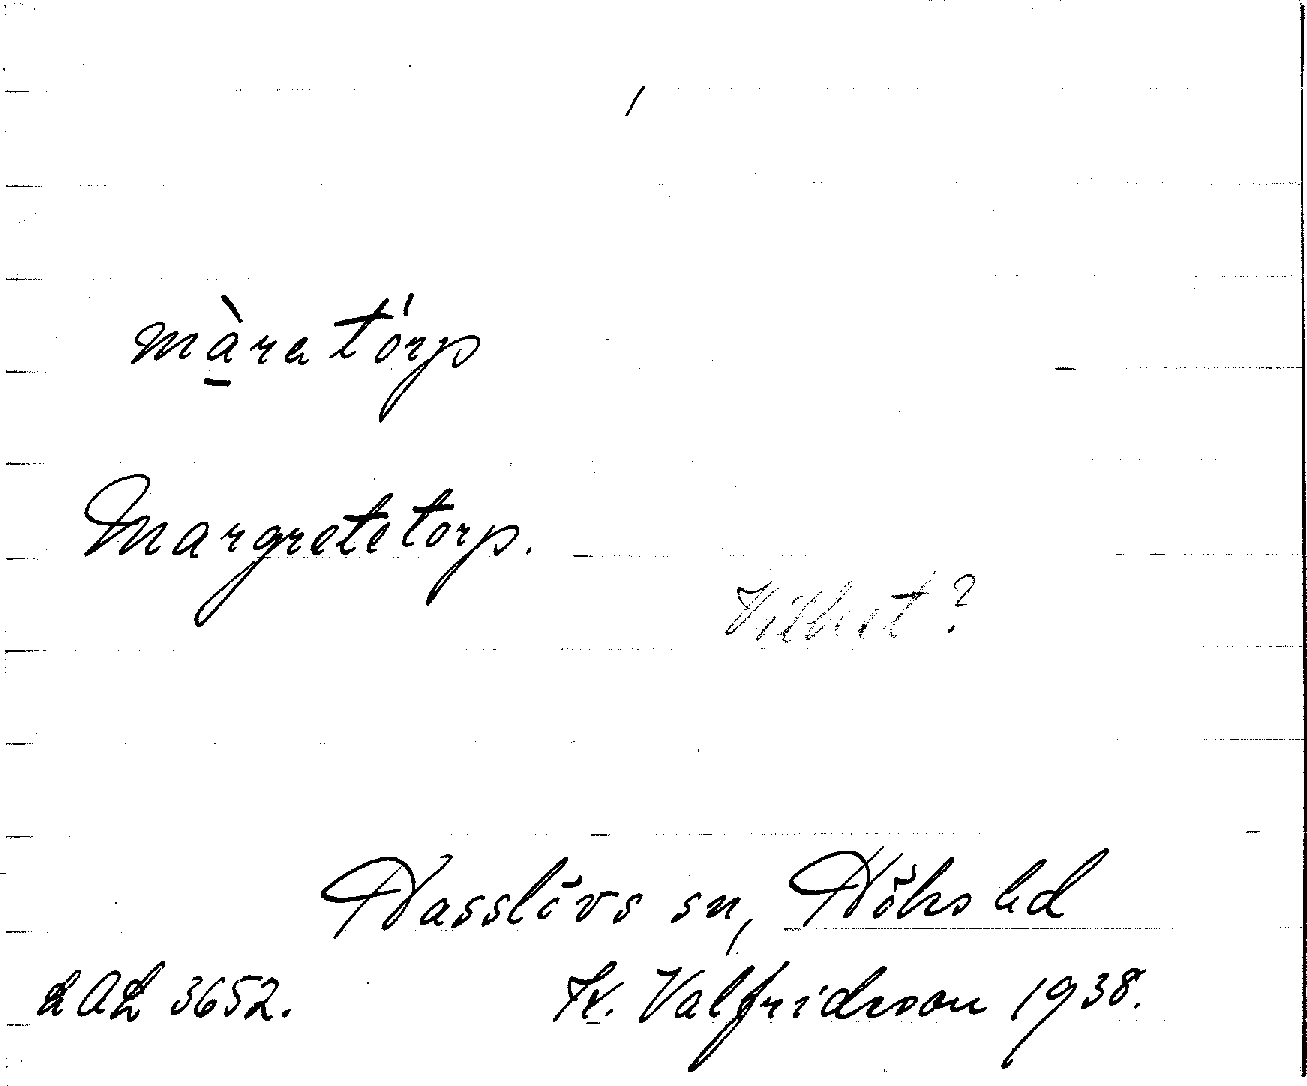 màratórp
Margretetorp.
Vilket?
Hasslövs sn, Höks hd
LAL 3652. K. Valfridsson 1938.